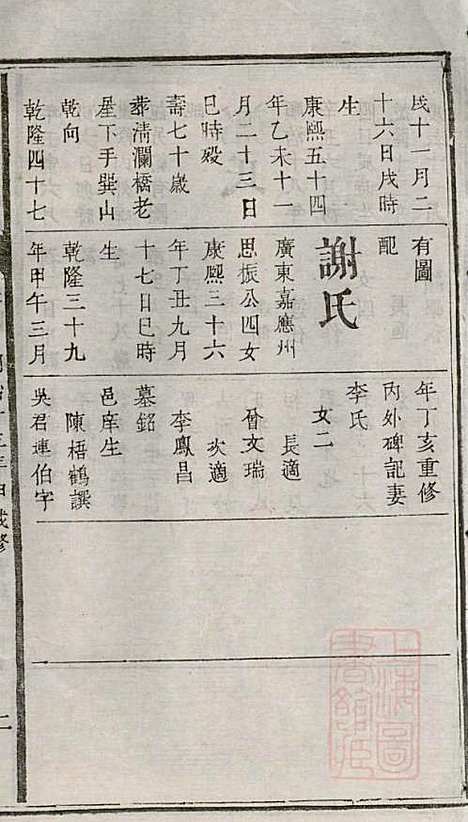 戌十一月二
十六日戌時
生
康熙五十四
年乙未十一
月二十三日
巳時殁
壽七十歲
葬淸瀾橋老
屋下手巽山
乾向
乾隆四十七
有圖
配
謝氏
廣東嘉應州
思振公四女
康熙三十六
年丁丑九月
十七日巳時
生
乾隆三十九
年甲午三月
年丁亥重修
內外碑記妻
李氏
女二
長適
曾文瑞
次適
李鳳昌
墓銘
邑庠生
陳梧鶴譔
吳君連伯字
上海圖
書館藏
二